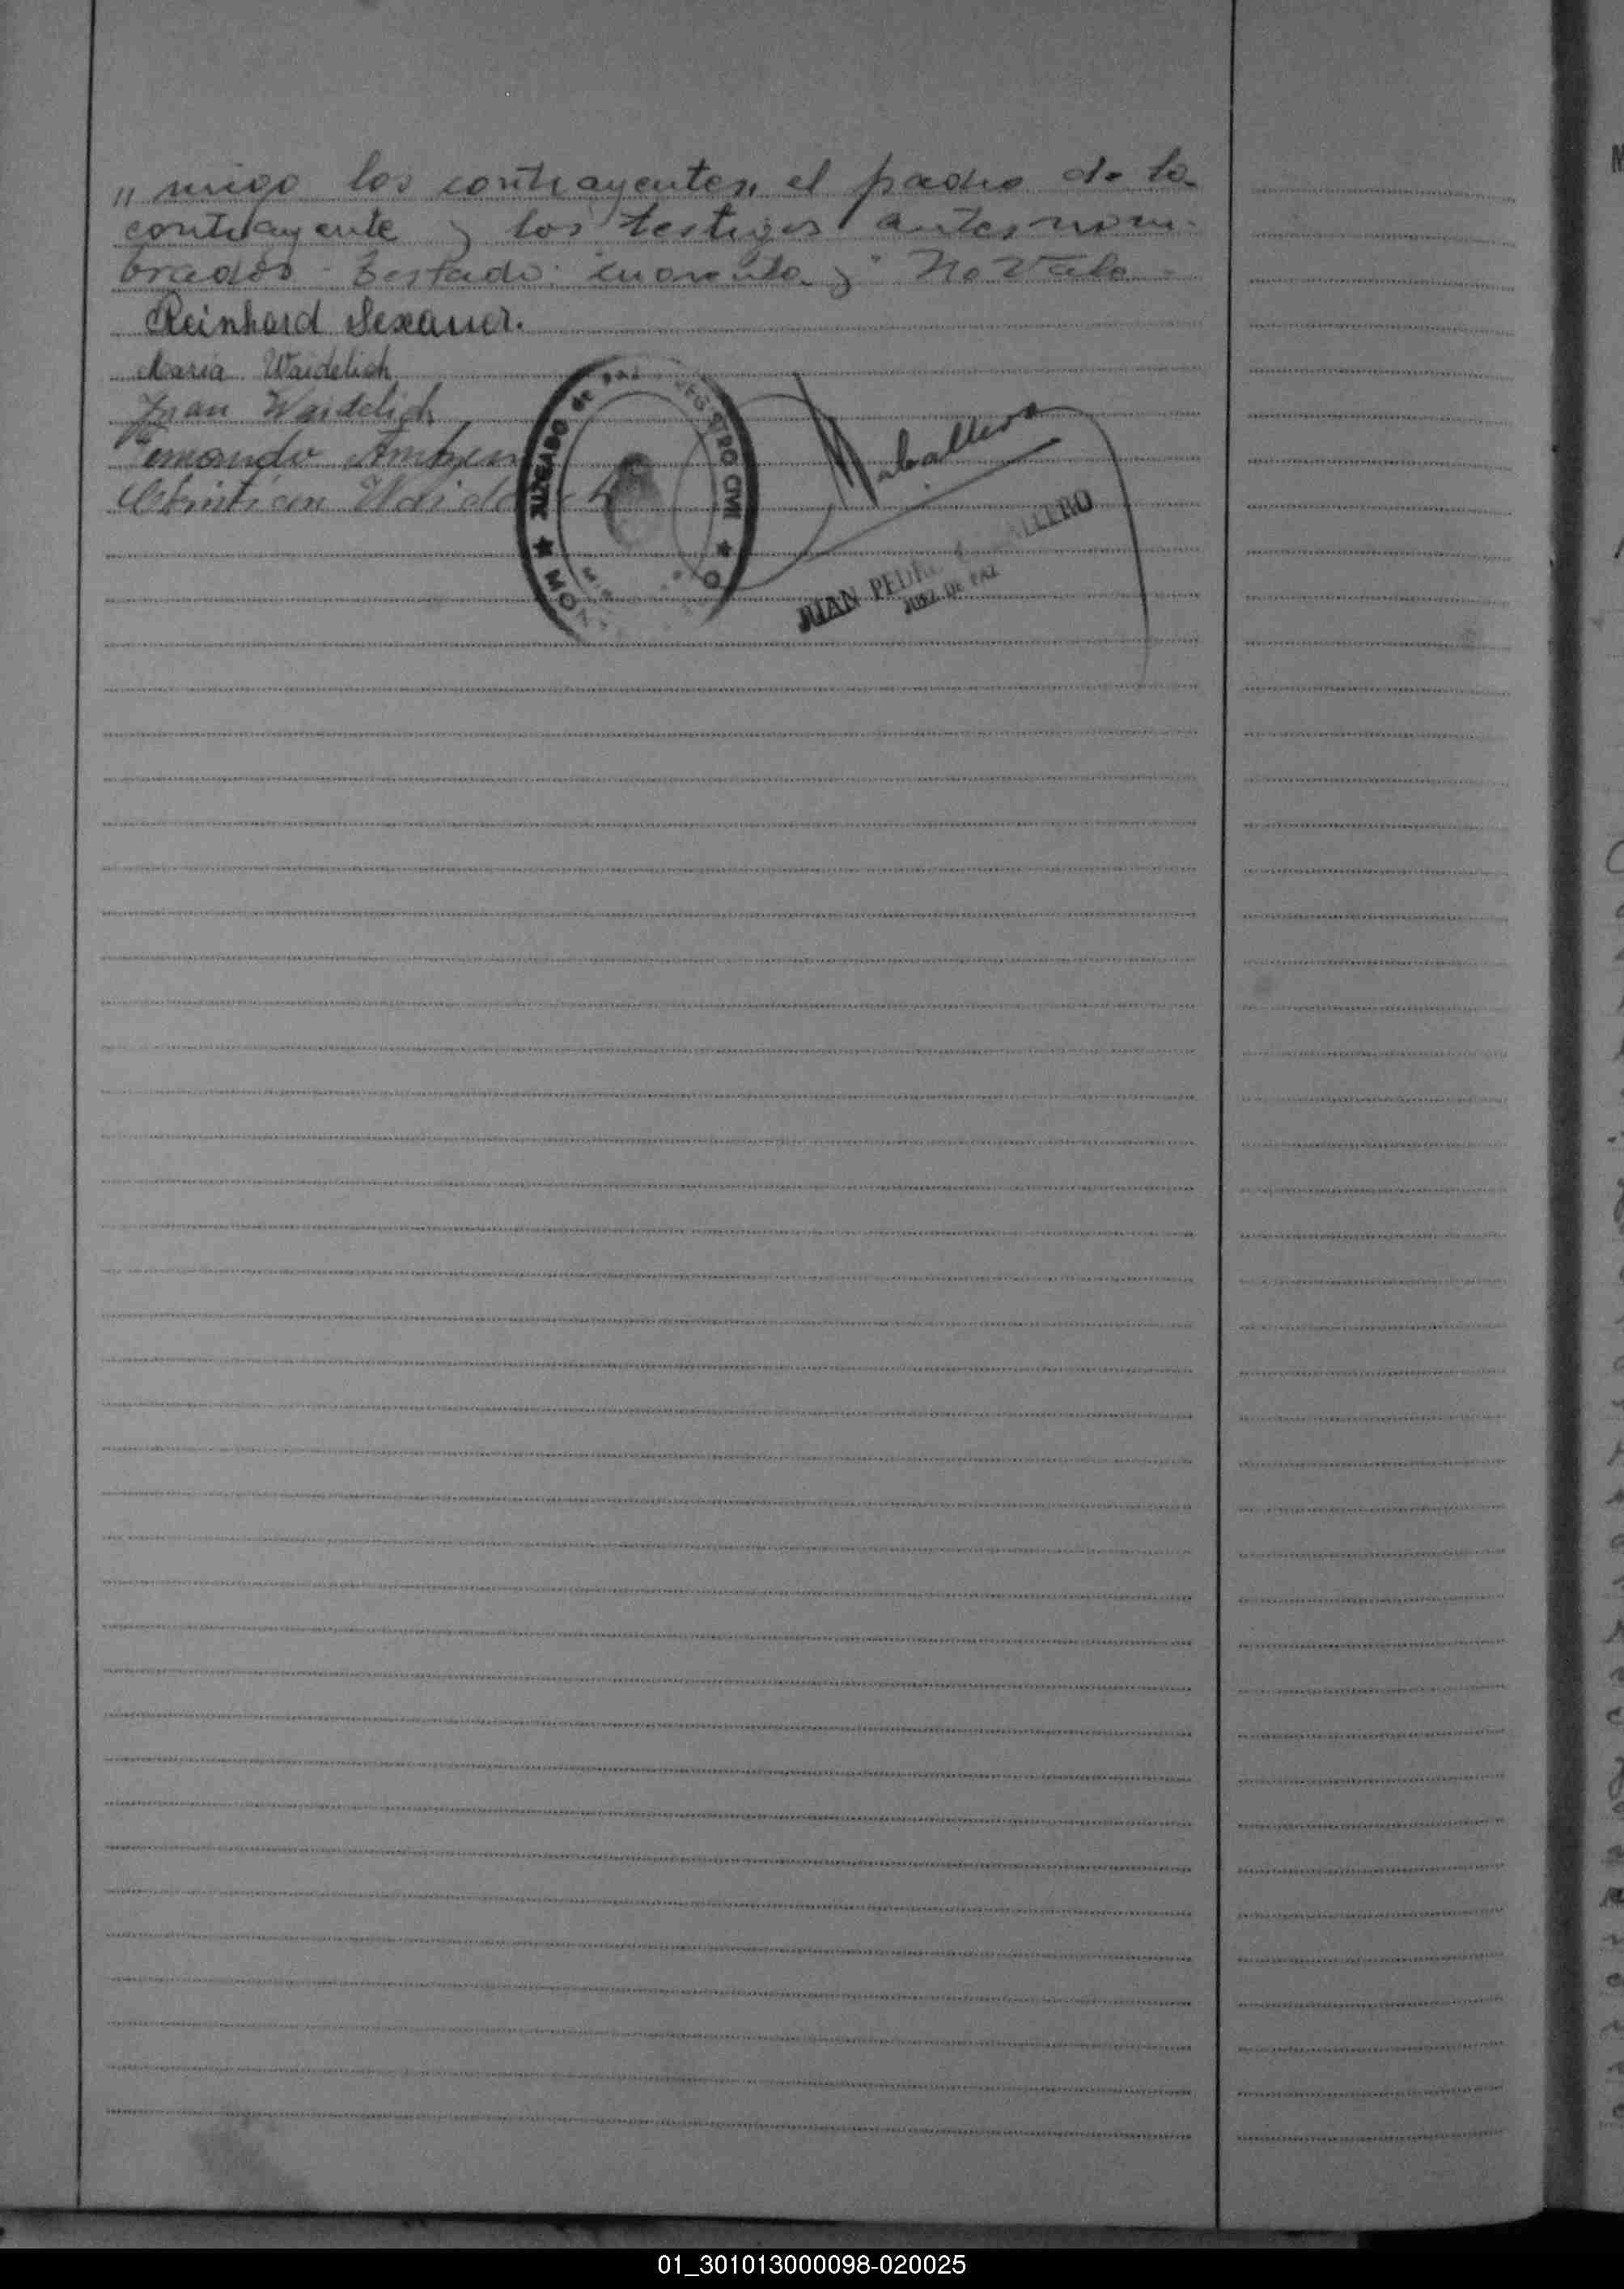 " migo los contrayentes, el padre de la
contrayente y los testigos antes nom-
brados - Testado: cuarenta y: No Vale -
Reinhard Sexauer.
Maria Waidelich
Juan Waidelich
Christian Waidelich
Caballero
JUZGADO de PAZ REGISTRO CIVIL
JUAN PEDRO CABALLERO
JUEZ DE PAZ
01_301013000098-020025